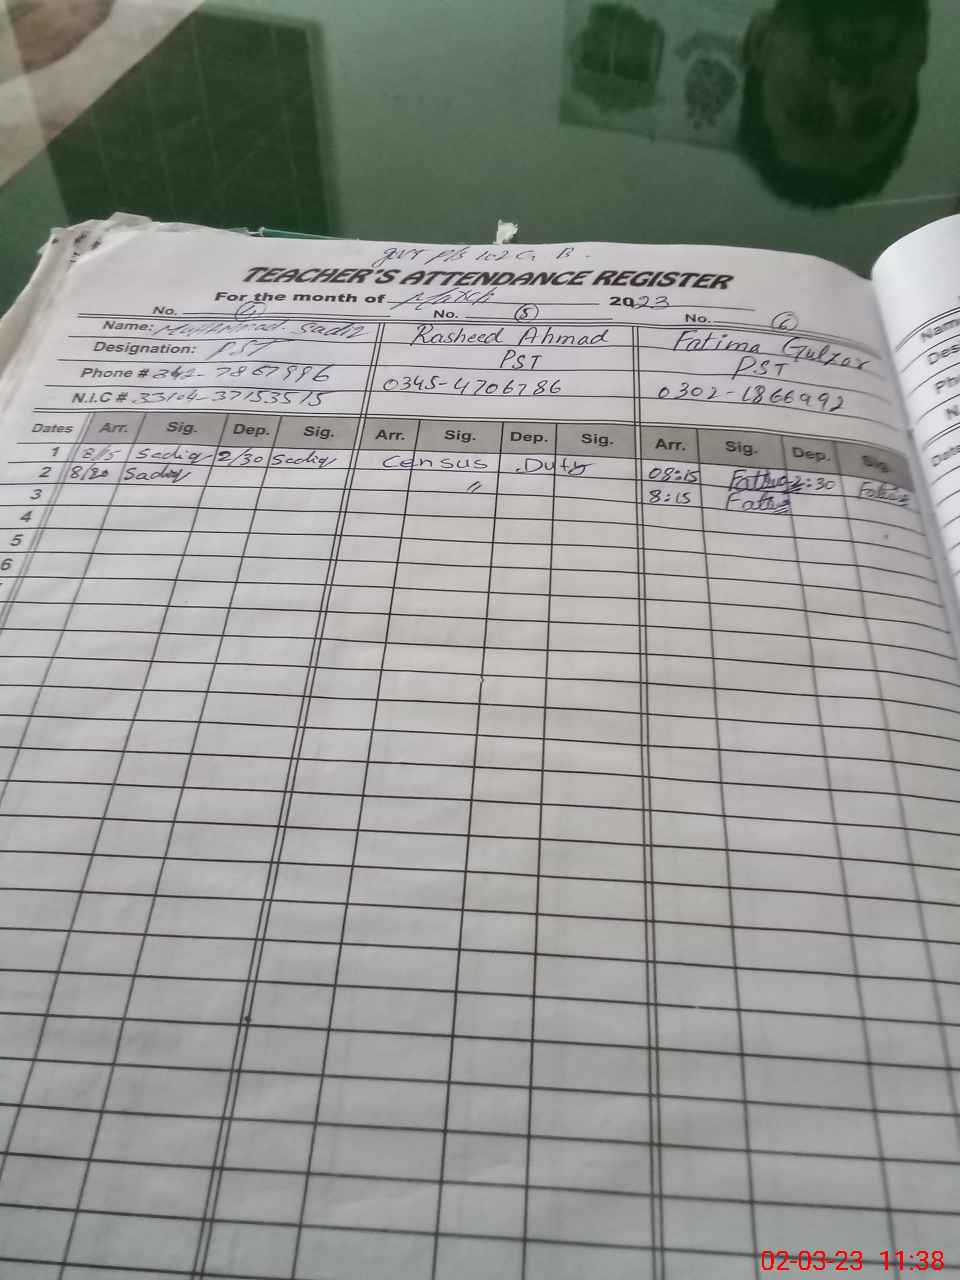 govt p/s 102 G B.
TEACHER'S ATTENDANCE REGISTER
For the month of March 2023
No. 4 No. 5 No. 6
Name: Muhammad Sadiq Rasheed Ahmad Fatima Gulzar
Designation: PST PST PST
Phone # 342-7867996 0345-4706786 0302-1866992
N.I.C # 33104-37153515
Dates Arr. Sig. Dep. Sig. Arr. Sig. Dep. Sig. Arr. Sig. Dep. Sig.
1 8/15 Sadiq 2/30 Sadiq Census Duty 08:15 Fatima 2:30 Fatima
2 8/20 Sadiq " 8:15 Fatima
3
4
5
6
Name
Des
Pho
N.
Date
02-03-23 11:38